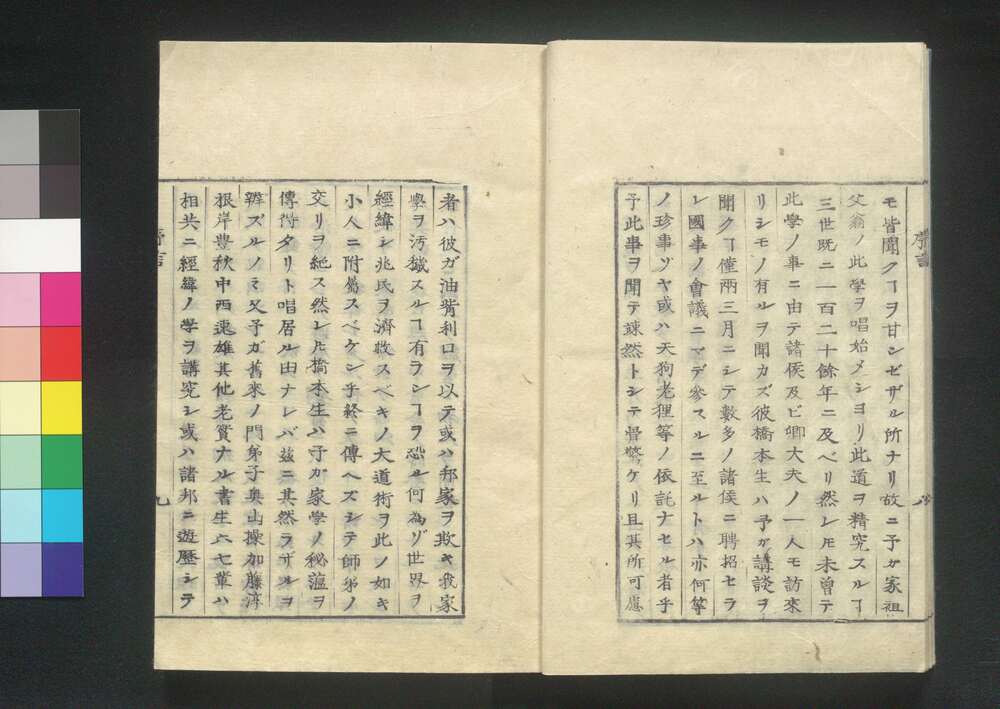 モ皆聞クヿヲ甘シゼザル所ナリ故ニ予ガ家祖
父翁ノ此學ヲ唱始メシヨリ此道ヲ精究スルヿ
三世既ニ一百二十餘年ニ及ベリ然レ𪜈未曾テ
此學ノ事ニ由テ諸侯及ビ卿大夫ノ一人モ訪來
リシモノ有ルヲ聞カズ彼橋本生ハ予ガ講談ヲ
聞クヿ僅兩三月ニシテ數多ノ諸侯ニ聘招セラ
レ國事ノ會議ニマデ參スルニ至ルトハ亦何等
ノ珍事ゾヤ或ハ天狗老狸等ノ依託ナセル者乎
予此事ヲ聞テ竦然トシテ骨驚ケリ且其所可應
序言
者ハ彼ガ油膏利口ヲ以テ或ハ邦家ヲ欺キ我家
學ヲ汚穢スルヿ有ランヿヲ恐ル何為ゾ世界ヲ
經緯シ兆民ヲ濟救スベキノ大道術ヲ此ノ如キ
小人ニ附屬スベケン乎終ニ傳ヘズシテ師弟ノ
交リヲ絶ス然レ𪜈橋本生ハ予ガ家学ノ秘蘊ヲ
傳得タリト唱居ル由ナレバ茲ニ其然ラザルヲ
辨ズルノミ又予ガ舊來ノ門弟子奥山操加藤淳
根岸豊秋中西速雄其他老實ナル書生六七輩ハ
相共ニ經緯ノ學ヲ講究シ或ハ諸邦ニ遊歷シテ
序言
九